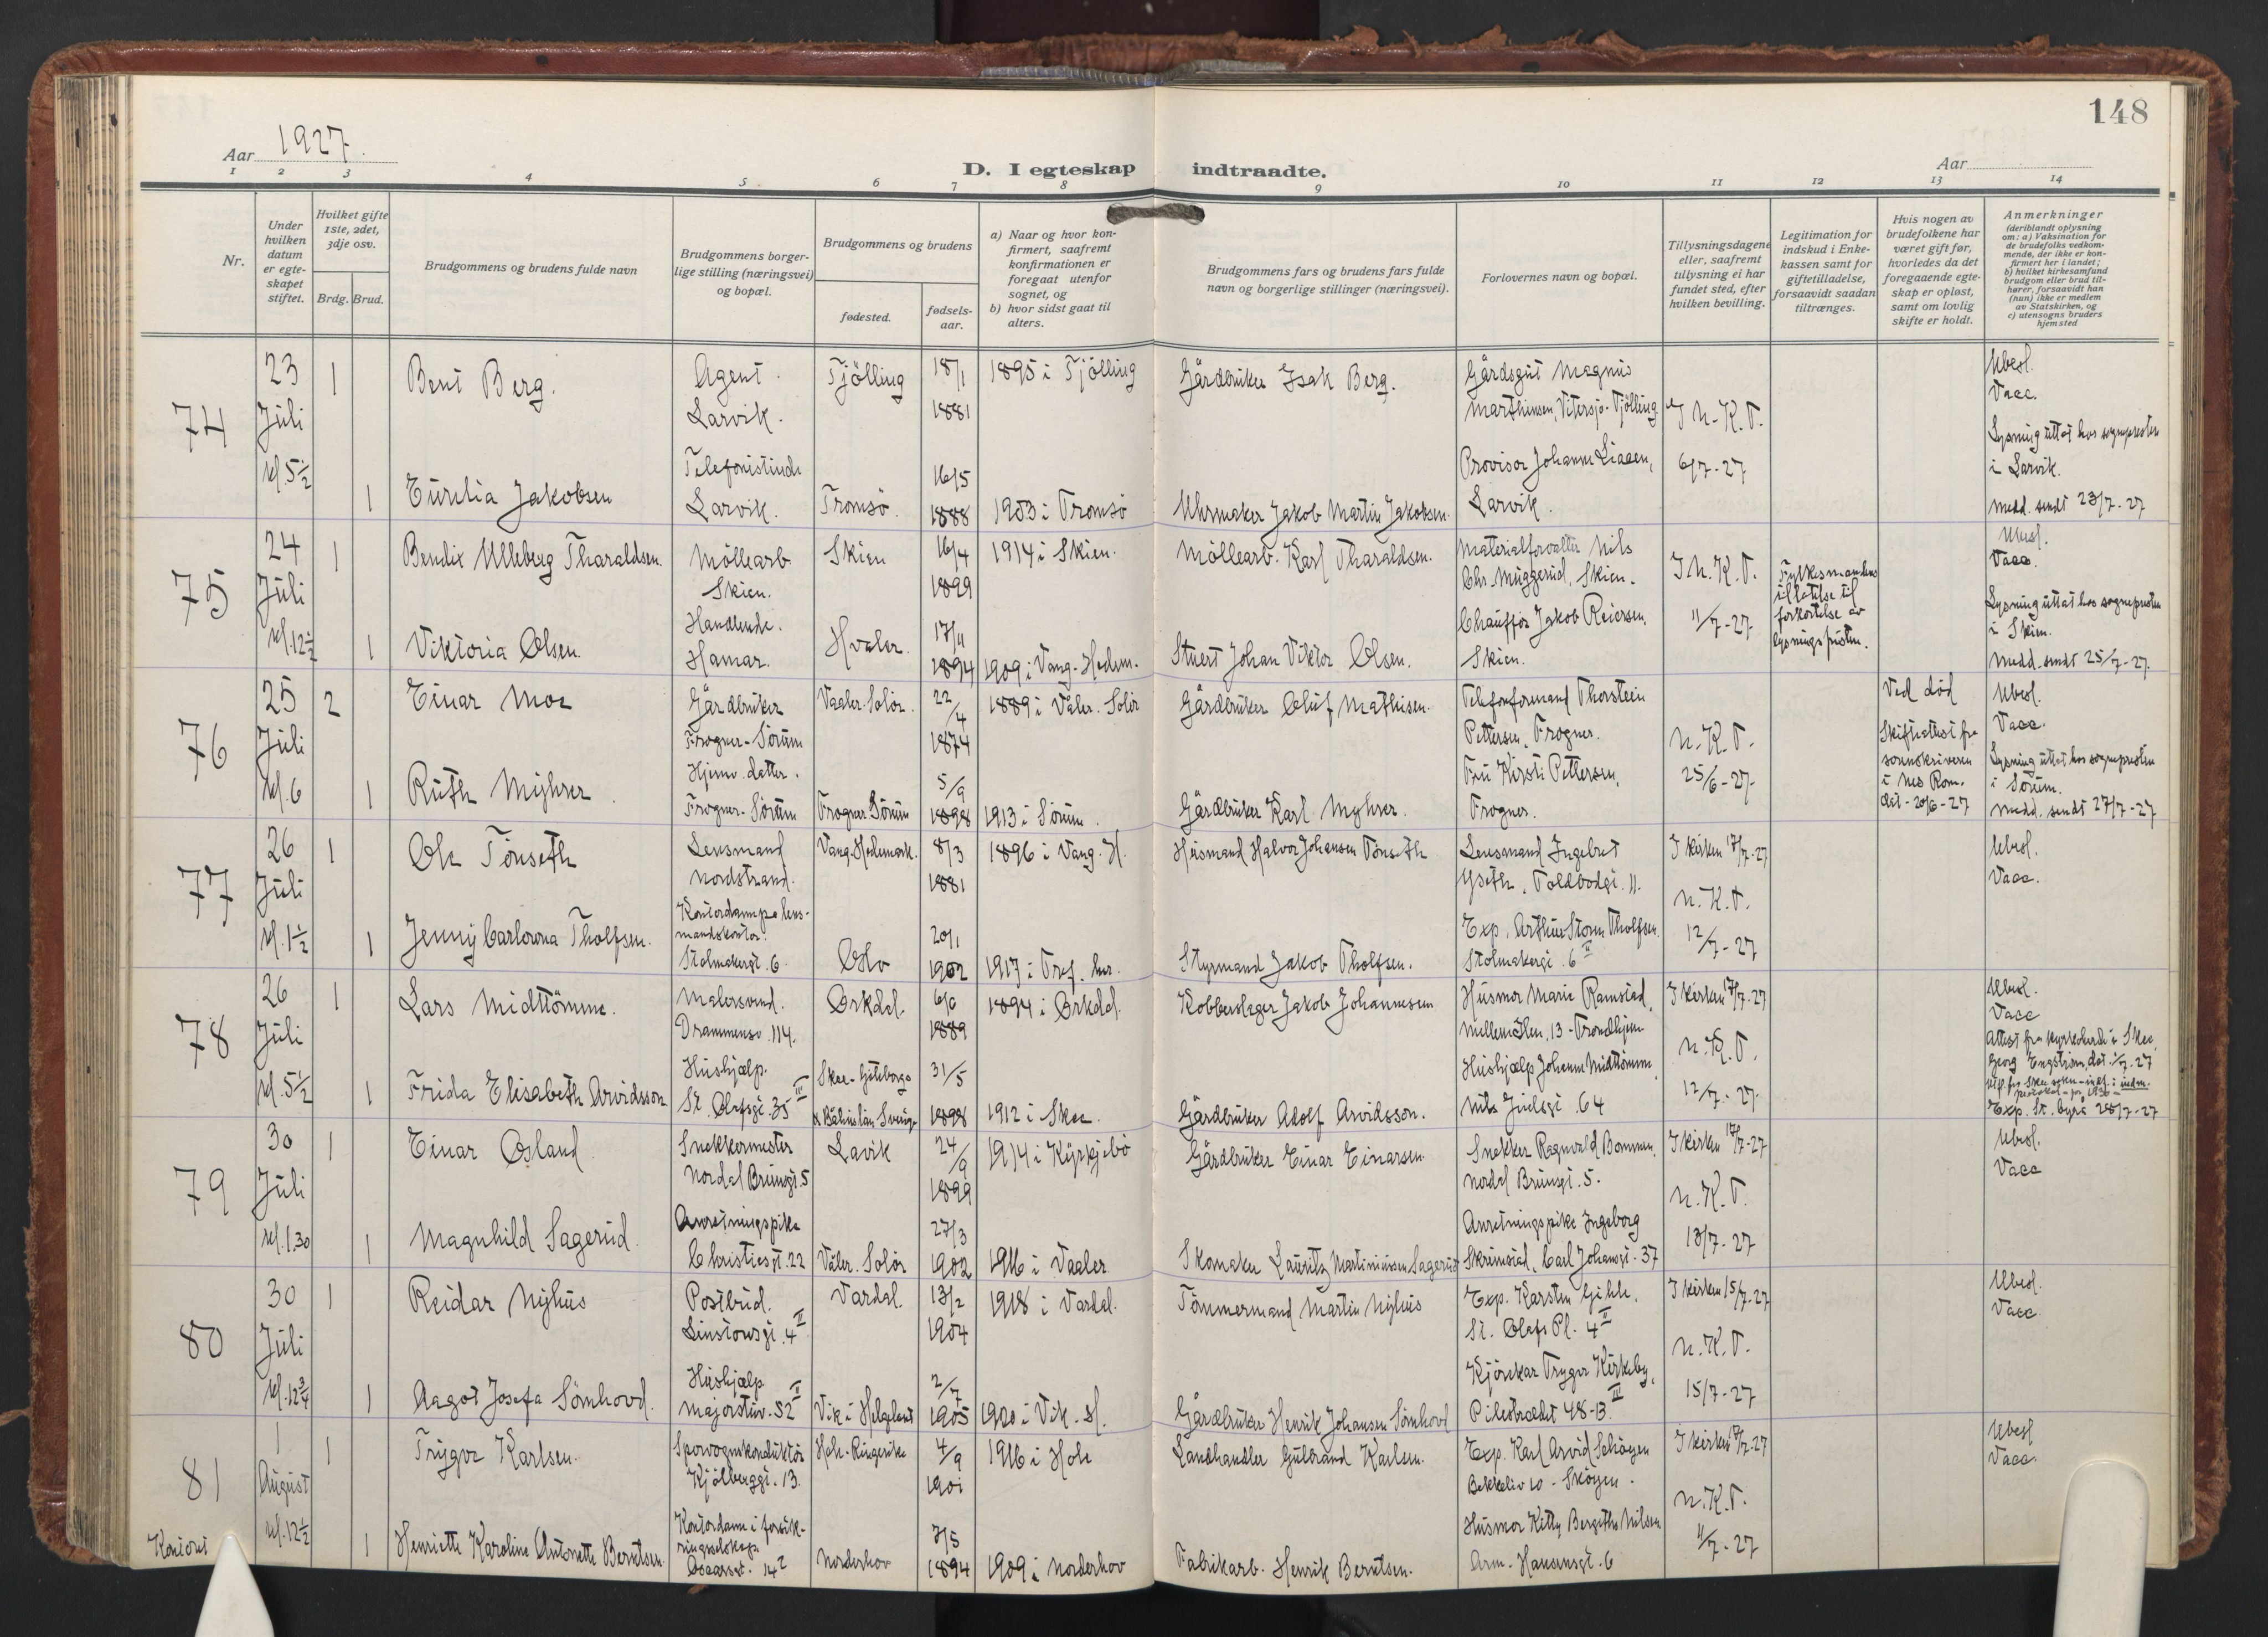 148
Aar 1927.
D. I egteskap indtraadte.
Aar
1 2 3 4 5 6 7 8 9 10 11 12 13 14
Nr.
Under hvilken datum er egteskapet stiftet.
Hvilket gifte 1ste, 2det, 3dje osv.
Brdg. Brud.
Brudgommens og brudens fulde navn
Brudgommens borgerlige stilling (næringsvei) og bopæl.
Brudgommens og brudens
fødested.
fødselsaar.
a) Naar og hvor konfirmert, saafremt konfirmationen er foregaat utenfor sognet, og
b) hvor sidst gaat til alters.
Brudgommens fars og brudens fars fulde navn og borgerlige stillinger (næringsvei).
Forlovernes navn og bopæl.
Tillysningsdagene eller, saafremt tillysning ei har fundet sted, efter hvilken bevilling.
Legitimation for indskud i Enkekassen samt for giftetilladelse, forsaavidt saadan tiltrænges.
Hvis nogen av brudefolkene har været gift før, hvorledes da det foregaaende egteskap er opløst, samt om lovlig skifte er holdt.
Anmerkninger (deriblandt oplysning om: a) Vaksination for de brudefolks vedkommende, der ikke er konfirmert her i landet; b) hvilket kirkesamfund brudgom eller brud tilhører, forsaavidt han (hun) ikke er medlem av Statskirken, og c) utensogns bruders hjemsted
74
23 Juli kl. 5½
1 Bent Berg. Agent. Larvik. Tjölling 18/1 1881 1895 i Tjölling Gårdbruker Isak Berg. Gårdsgut Magnus Marthinsen, Vitersjø - Tjölling
N.K.T. 6/7-27
Ubesl. Vacc. Lysning uttat hos sognepresten i Larvik. Medd. sendt 23/7-27
1 Eurelia Jakobsen Telefonistinde Larvik. Tromsö. 16/5 1888 1903 i Tromsö Uhrmaker Jakob Martin Jakobsen. Provisor Johanne Liaaen, Larvik.
75
24 Juli kl. 12½
1 Bendix Ulleberg Tharaldsen. Möllearb Skien. Skien 16/4 1899 1914 i Skien. Möllearb. Karl Tharaldsen. Materialforvalter Nils Chr. Muggerud, Skien.
I N.K.T. 11/7-27
Fylkesmandens tillatelse til forkortelse av lysningsfristen.
Ubesl. Vacc. Lysning uttat hos sognepresten i Skien. Medd. sendt 25/7-27.
1 Viktoria Olsen. Handlende. Hamar. Hvaler. 17/11 1894 1909 i Vang - Hedem. Stuert Johan Viktor Olsen. Chauffør Jakob Reiersen, Skien.
76
25 Juli kl. 6
2 Einar Moe Gårdbruker Frogner - Sörum Vaaler. Solör. 22/4 1874 1889 i Våler. Solör Gårdbruker Oluf Mathisen. Telefonformand Thorstein Pettersen, Frogner.
N.K.T. 25/6-27.
Ved död Skifteattest fra sorenskriveren i Nes Rom. dat - 20/6-27
Ubesl. Vacc. Lysning uttat hos sognepresten i Sörum. Medd. sendt 27/7-27
1 Ruth Myhrer Hjemv. datter. Frogner - Sörum Frogner. Sörum 5/9 1898 1913 i Sörum. Gårdbruker Karl Myhrer. Fru Kirsti Pettersen, Frogner.
77
26 Juli kl. 1½
1 Ole Tönseth Lensmand Nordstrand. Vang. Hedemark. 8/3 1881 1896 i Vang. H. Husmand Halvor Johansen Tönseth Lensmand Ingebret Yseth, Toldbodgt. 11.
I kirken 17/7-27 N.K.T. 12/7-27
Ubesl. Vacc.
1 Jenny Carlowna Tholfsen. Kontordame på lensmandskontor. Stolmakergt. 6 Oslo 20/1 1902 1917 i Tref. her. Styrmand Jakob Tholfsen. Exp. Arthur Storm Tholfsen, Stolmakergt. 6 II
78
26 Juli kl. 5½
1 Lars Midttömme. Malersvend. Drammensv. 114. Orkdal. 6/6 1889 1894 i Orkdal. Kobberslager Jakob Johannesen Husmor Marie Ramstad, Mellemilen, 13 - Trondhjem
I kirken 17/7-27 N.K.T. 12/7-27
Ubesl. Vacc Attest fra kyrkoherde i Skee, Georg Engström, dat. 1/7-27 Exp. St. byrå 28/7-27
1 Frida Elisabeth Arvidsson Hushjælp. St. Olafsgt. 35 III Skee - Göteborgs & Båhuslän, Sverige 31/5 1898 1912 i Skee. Gårdbruker Adolf Arvidsson. Hushjælp Johanne Midttömme, Nils Juelsgt. 64
79
30 Juli kl. 1.30
1 Einar Osland. Snekkermester Nordal Brunsgt. 5 Lavik 24/9 1899 1914 i Kyrkjebö Gårdbruker Einar Einarsen. Snekker Ragnvald Bommen, Nordal Brunsgt. 5.
I kirken 17/7-27 N.K.T. 13/7-27
Ubesl. Vacc
1 Magnhild Sagerud. Anretningspike Christiesgt. 22 Våler. Solör 27/3 1902 1916 i Vaaler Skomaker Lauritz Martiniusen Sagerud Anretningspike Ingeborg Skrimstad, Carl Johansgt. 37
80
30 Juli kl. 12¾
1 Reidar Nyhus Postbud. Linstowsgt. 4 II Vardal. 13/2 1904 1918 i Vardal. Tömmermand Martin Nyhus Exp. Karsten Gihle, St. Olafs Pl. 4 II
I kirken 15/7-27 N.K.T. 15/7-27
Ubesl. Vacc
1 Aagot Josefa Sömhovd. Hushjælp Majorstuv. 52 II Vik i Helgeland 2/7 1905 1920 i Vik. H. Gårdbruker Henrik Johansen Sömhovd Kjörekar Trygve Kirkeby, Pilestrædet 48-B. III
81
1 August kl. 12½
1 Trygve Karlsen. Sporvognskonduktör Kjölberggt. 13. Hole - Ringerike 4/9 1901 1916 i Hole Landhandler Gulbrand Karlsen. Exp. Karl Arvid Schöyen Bekkeliv 10 - Sköyen.
I kirken 17/7-27 N.K.T. 11/7-27
Ubesl Vacc.
Kontoret
1 Henriette Karoline Antonette Berntsen. Kontordame i forsikringsselskap Oscarsgt. 14 Norderhov 7/5 1894 1909 i Norderhov Fabrikarb. Henrik Berntsen. Husmor Kitty Bergithe Nilsen Arm. Hansensgt. 6